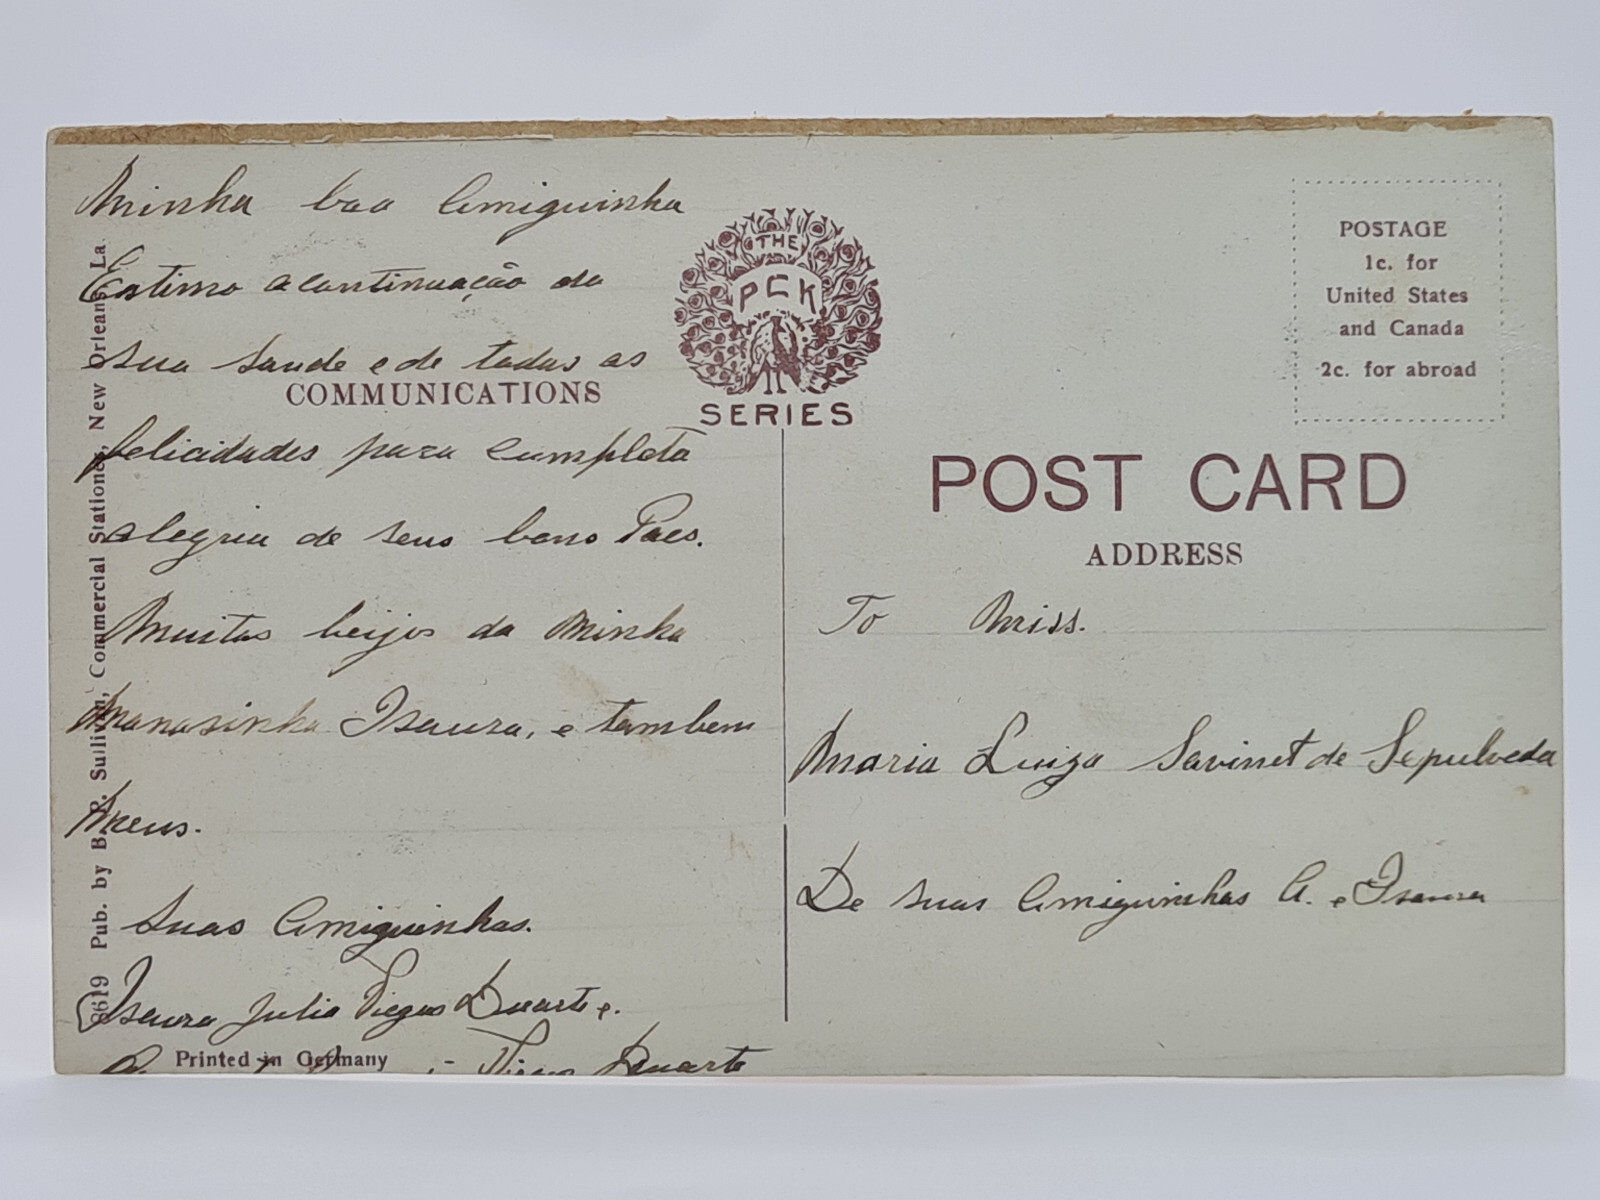 Minha boa Amiguinha
Estimo a continuação da
sua saude e de todas as
COMMUNICATIONS
felicidades para completa
alegria de seus bons Paes.
Muitos beijos da Minha
Manasinha Isaura, e tambem
Meus.
Suas Amiguinhas.
Isaura Julia Viegas Duarte e.
Viegas Duarte
Printed in Germany
8619 Pub. by B. P. Sulivan, Commercial Stationer, New Orleans, La
THE
PCK
SERIES
POSTAGE
1c. for
United States
and Canada
2c. for abroad
POST CARD
ADDRESS
To Miss.
Maria Luiza Savinet de Sepulveda
De suas Amiguinhas A. e Isaura